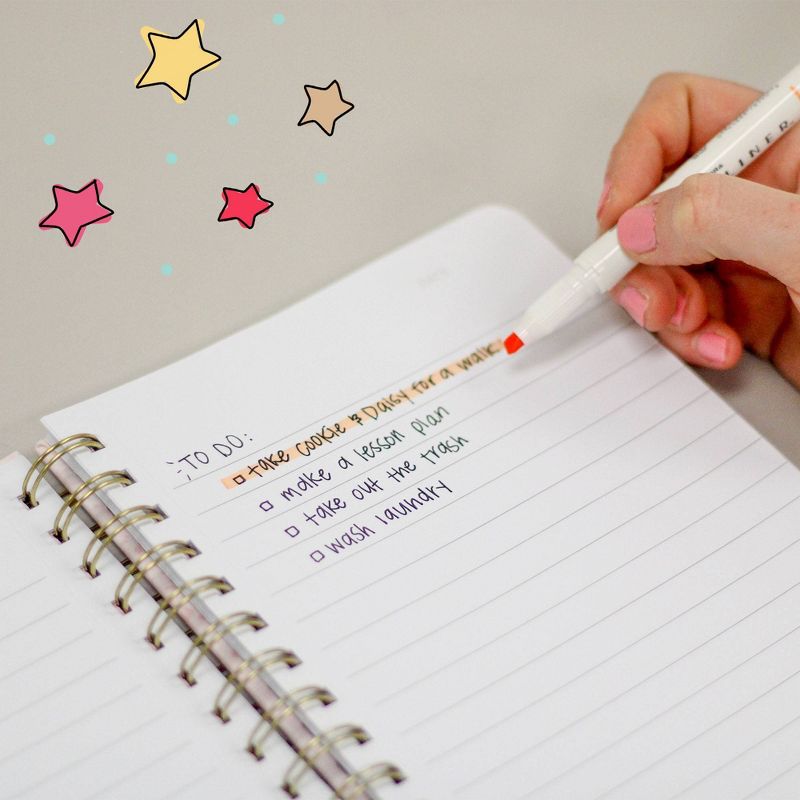 TO DO:
take cookie & Daisy for a walk
make a lesson plan
take out the trash
wash laundry
LINER